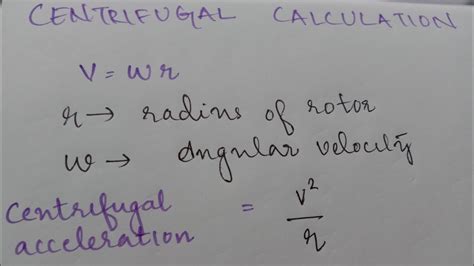 CENTRIFUGAL CALCULATION
V = wr
r → radius of rotor
w → Angular velocity
Centrifugal acceleration = v²/r